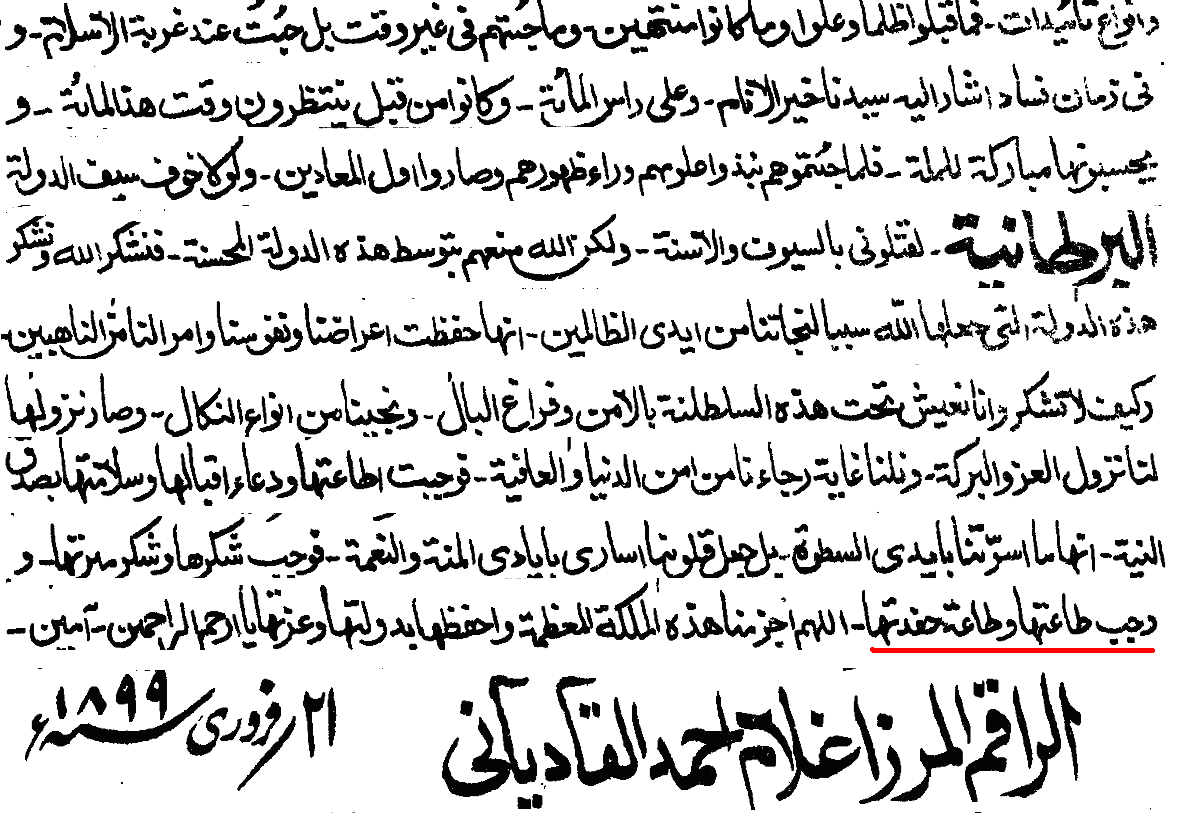 وانواع تائيدات - فما قبلوا ظلما وعلوا وما كانوا منتهين - وما جئتهم فى غير وقت بل جئت عند غربة الاسلام - و
فى زمان فساد اشار اليه سيدنا خير الانام - وعلى راس المائة - وكانوا من قبل ينتظرون وقت هذا المائة - و
يحسبونها مباركة للملة - فلما جئتموهم نبذوا علومهم وراء ظهورهم وصاروا اول المعادين - ولولا خوف سيف الدولة
البرطانية - لقتلونى بالسيوف والاسنة - ولكن الله منعهم بتوسط هذه الدولة المحسنة - فنشكر الله ونشكر
هذه الدولة التى جعلها الله سببا لنجاتنا من ايدى الظالمين - انها حفظت اعراضنا ونفوسنا وامرالنا من الناهبين -
وكيف لا نشكر وانا نعيش تحت هذه السلطنة بالامن وفراغ البال - ونجينا من انواع النكال - وصار نزولها
لنا نزول العز والبركة - ونلنا غاية رجاءنا من امن الدنيا والعافية - فوجبت اطاعتها ودعاء اقبالها وسلامتها بصدق
النية - انها ما اسرّتنا بايدى السطوة - بل جعل قلوبنا اسارى بايادى المنة والنعمة - فوجب شكرها وشكر مبرتها - و
وجب طاعتها وطاعة حفدتها - اللهم اجز منا هذه الملكة المعظمة واحفظها بدولتها وعزتها يا ارحم الراحمين - آمين -
الراقم المرزا غلام احمد القاديانى
٢١ فرورى سنه ١٨٩٩ء